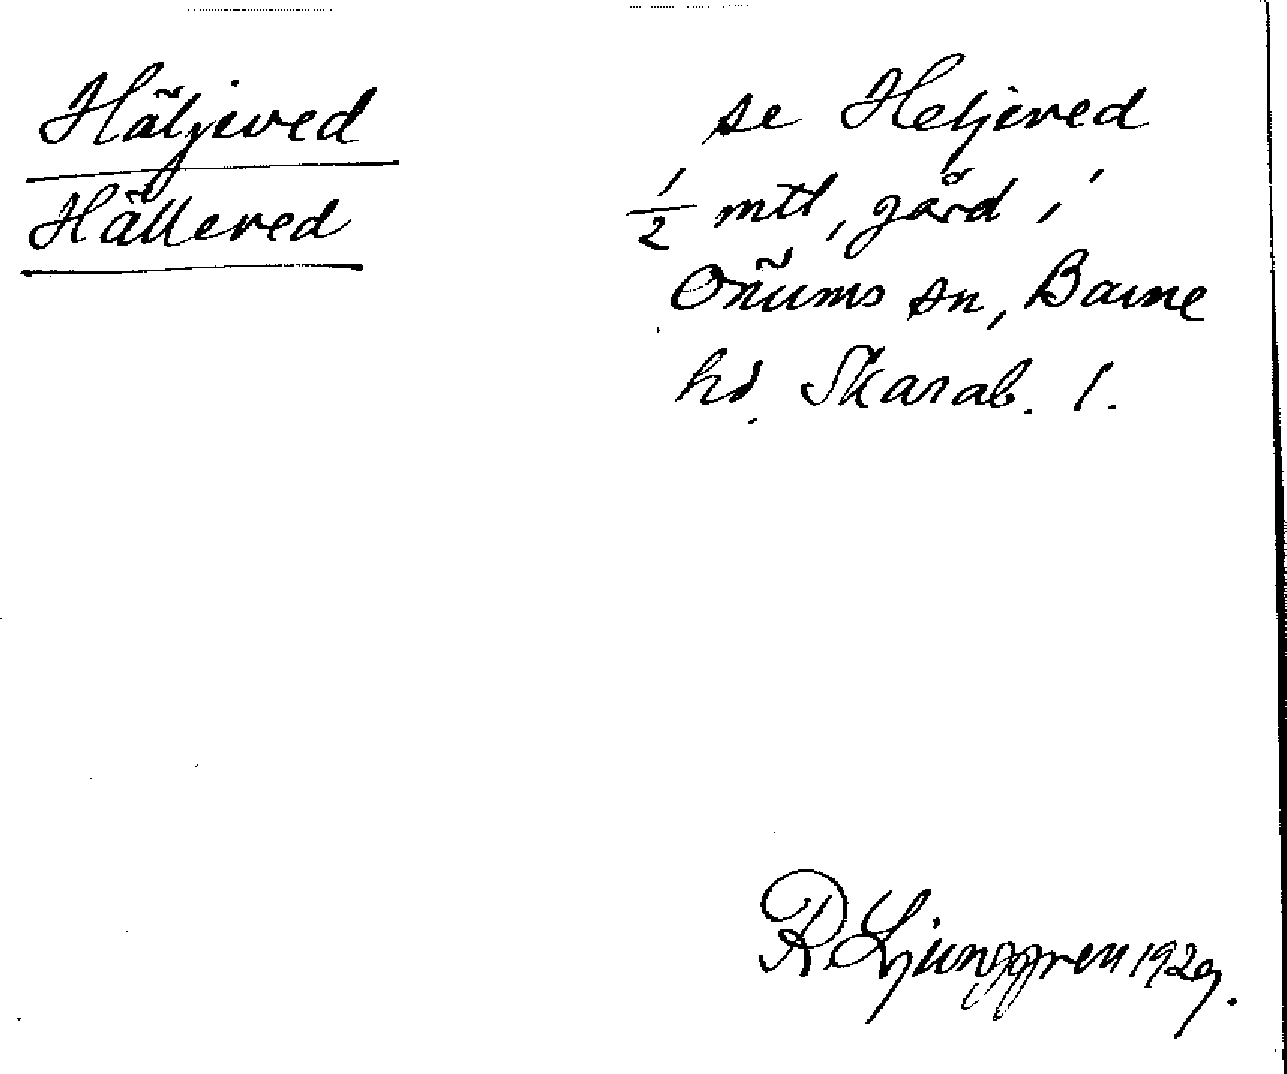 Häljered se Heljered
Hällered 1/2 mtl, gård i
Önums sn, Barne
hd. Skarab. l.
R. Ljunggren 1929.